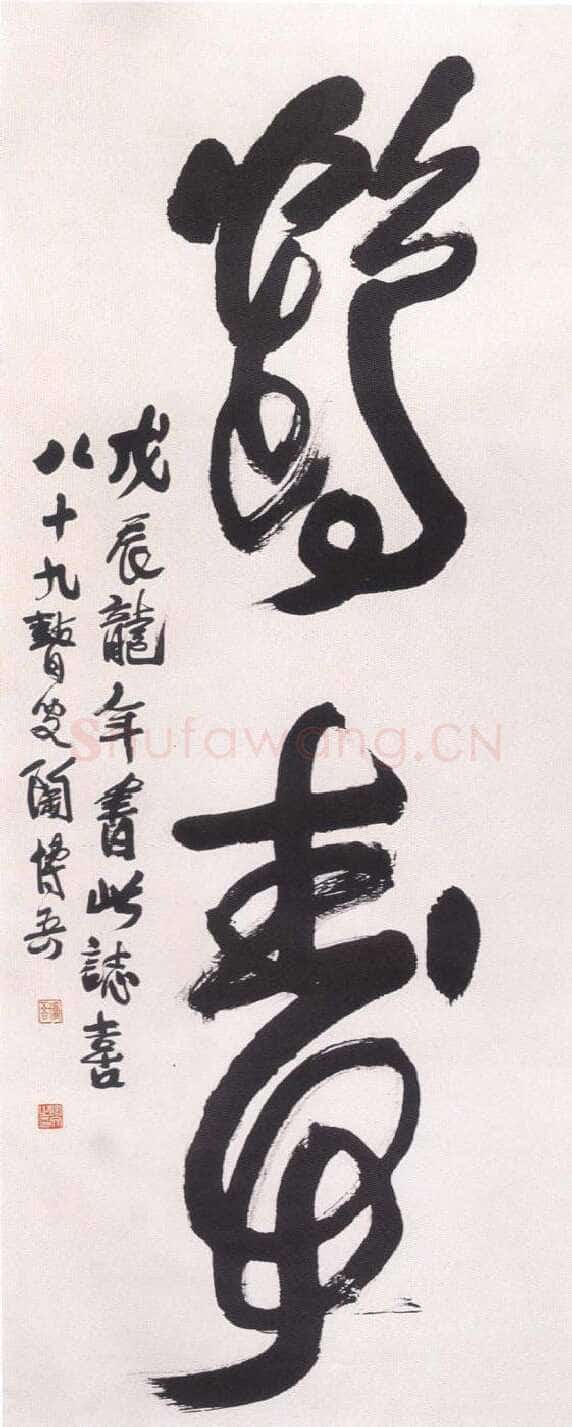 鶴壽
戊辰龍年書此誌喜
八十九瞽叟陶博吾
Shufawang.CN